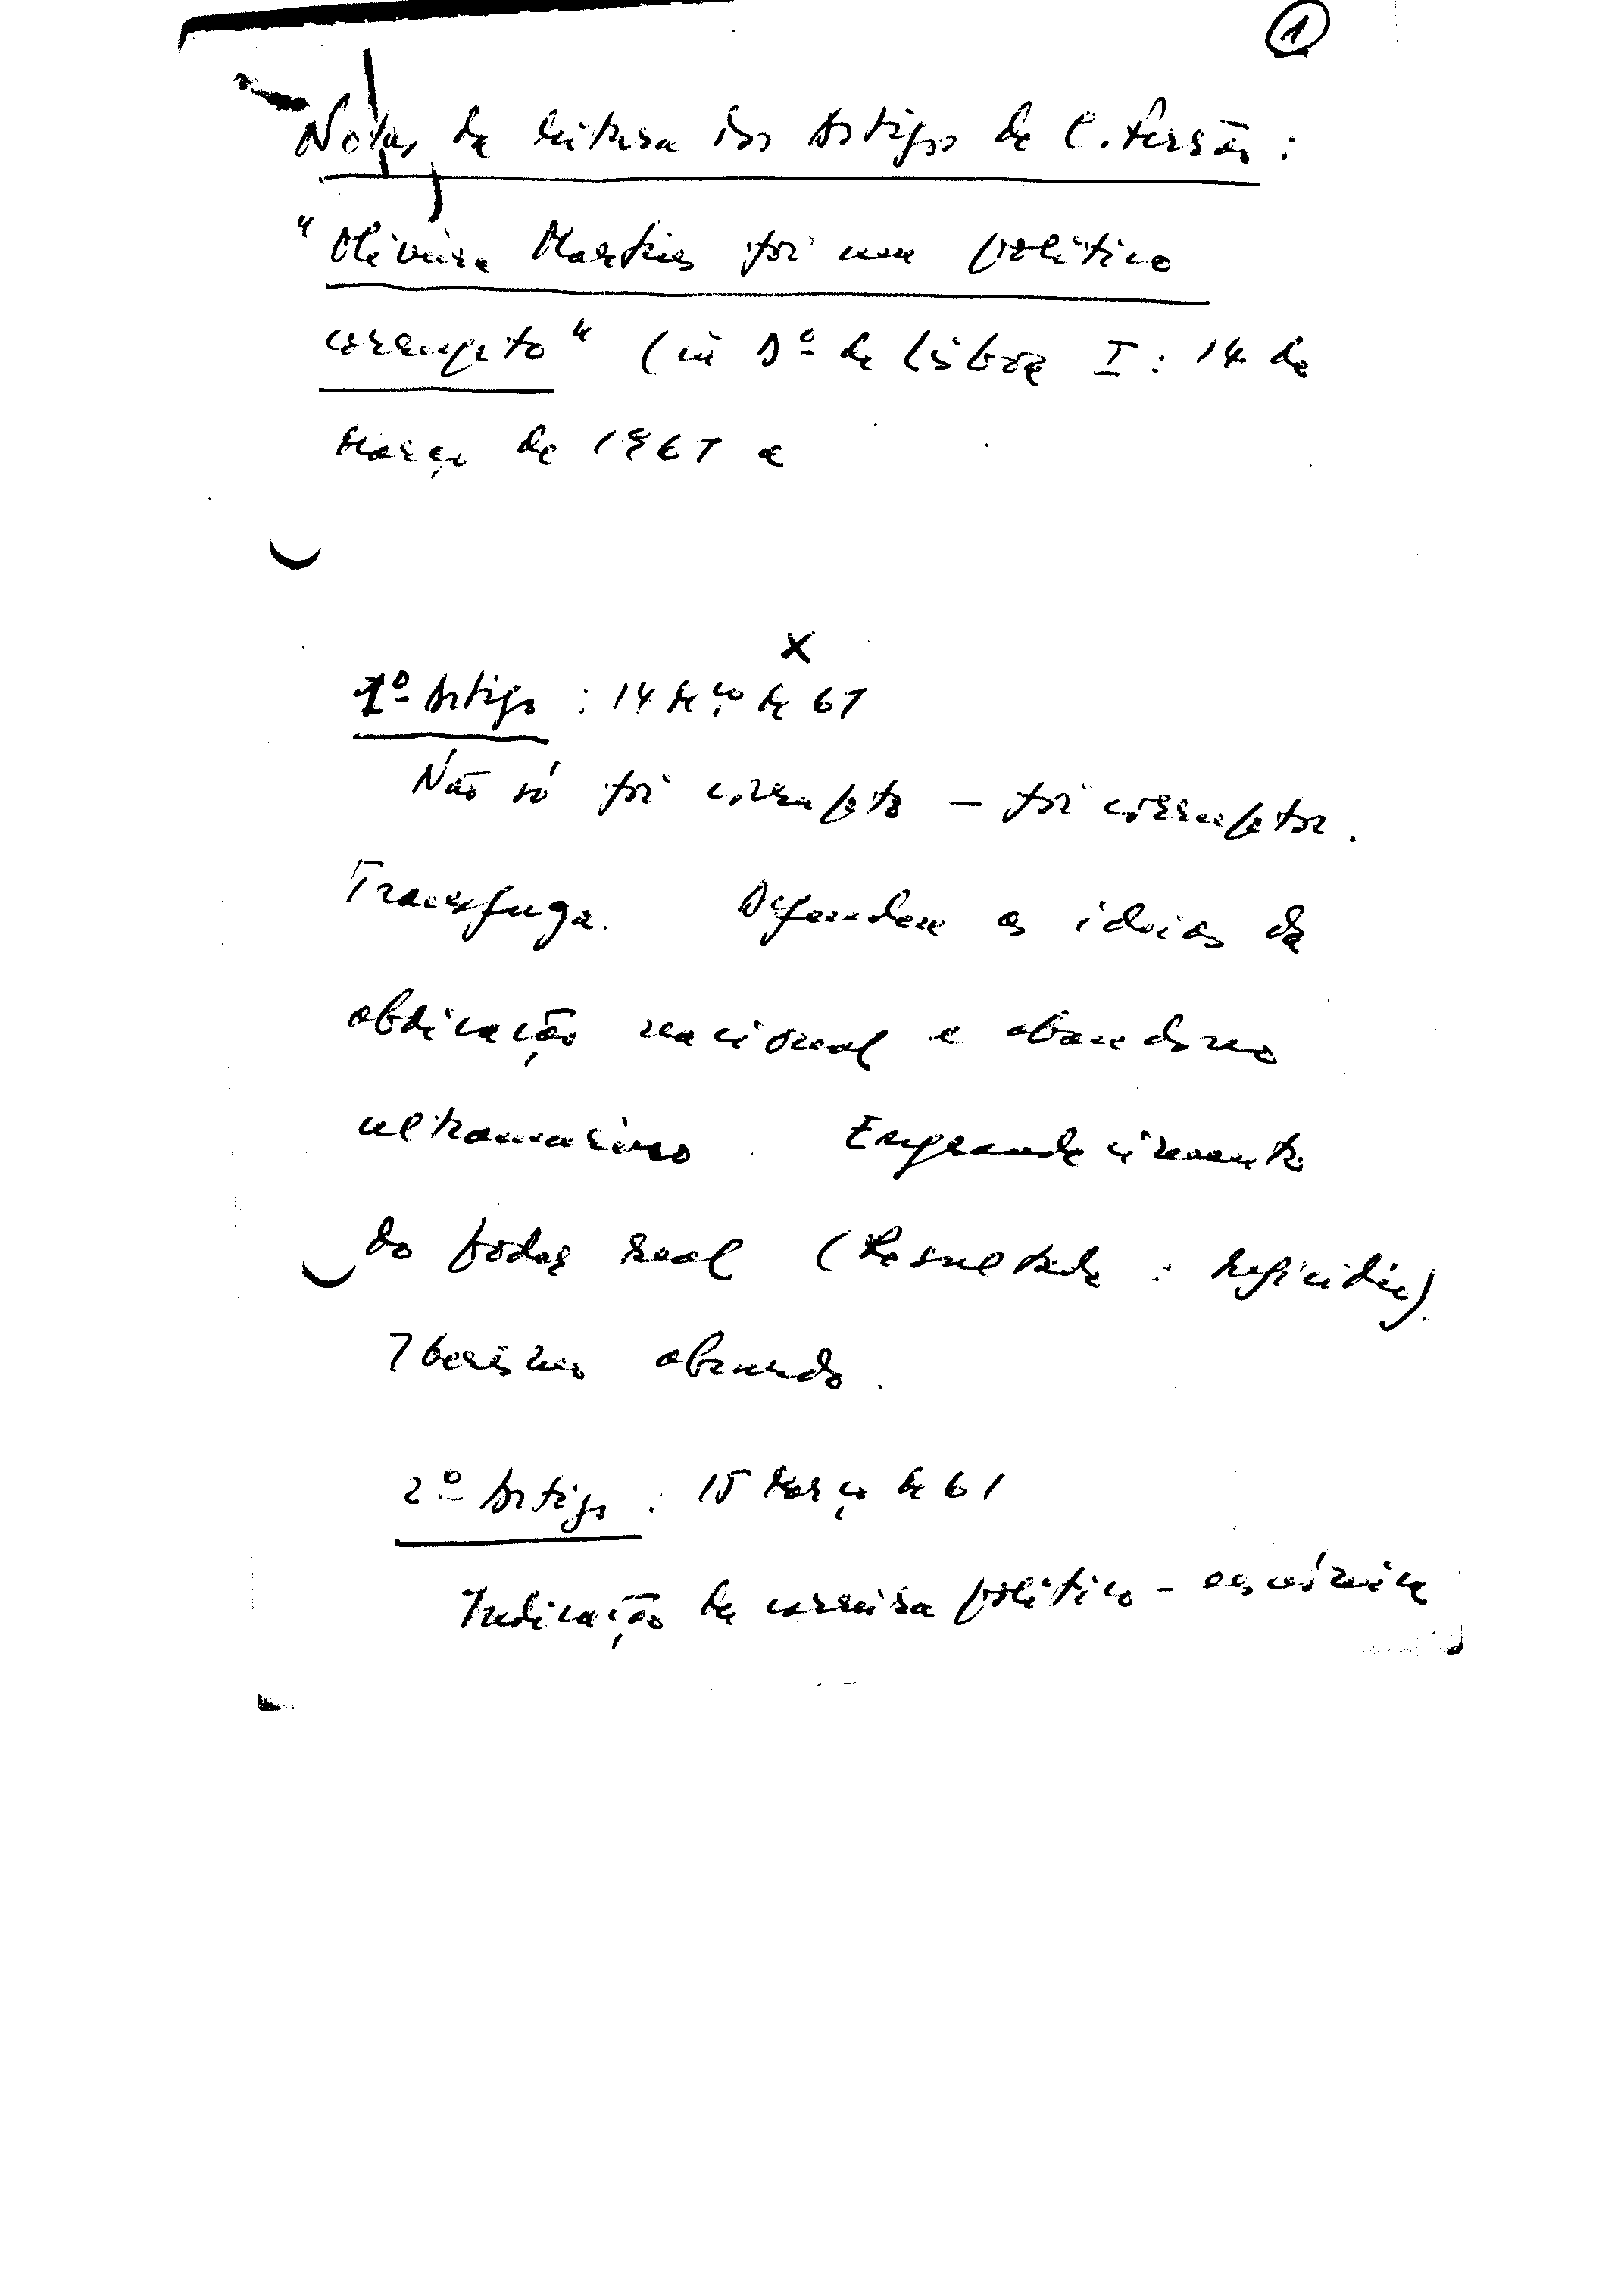 1
Notas de leitura dos Artigos de C. Fersão:
"Oliveira Martins foi um político
corrupto" (in Dº de Lisboa I: 14 de
Março de 1967 a
X
1º Artigo: 14 de ço de 67
Não só foi corrupto – foi corruptor.
Transfuga. Defendeu as ideias da
abdicação nacional e abandono
ultramarino. Engrandecimento
do poder real (Resultado: regicídio)
Iberismo absurdo.
2º Artigo: 15 Março de 67
Indicação da carreira político-económica